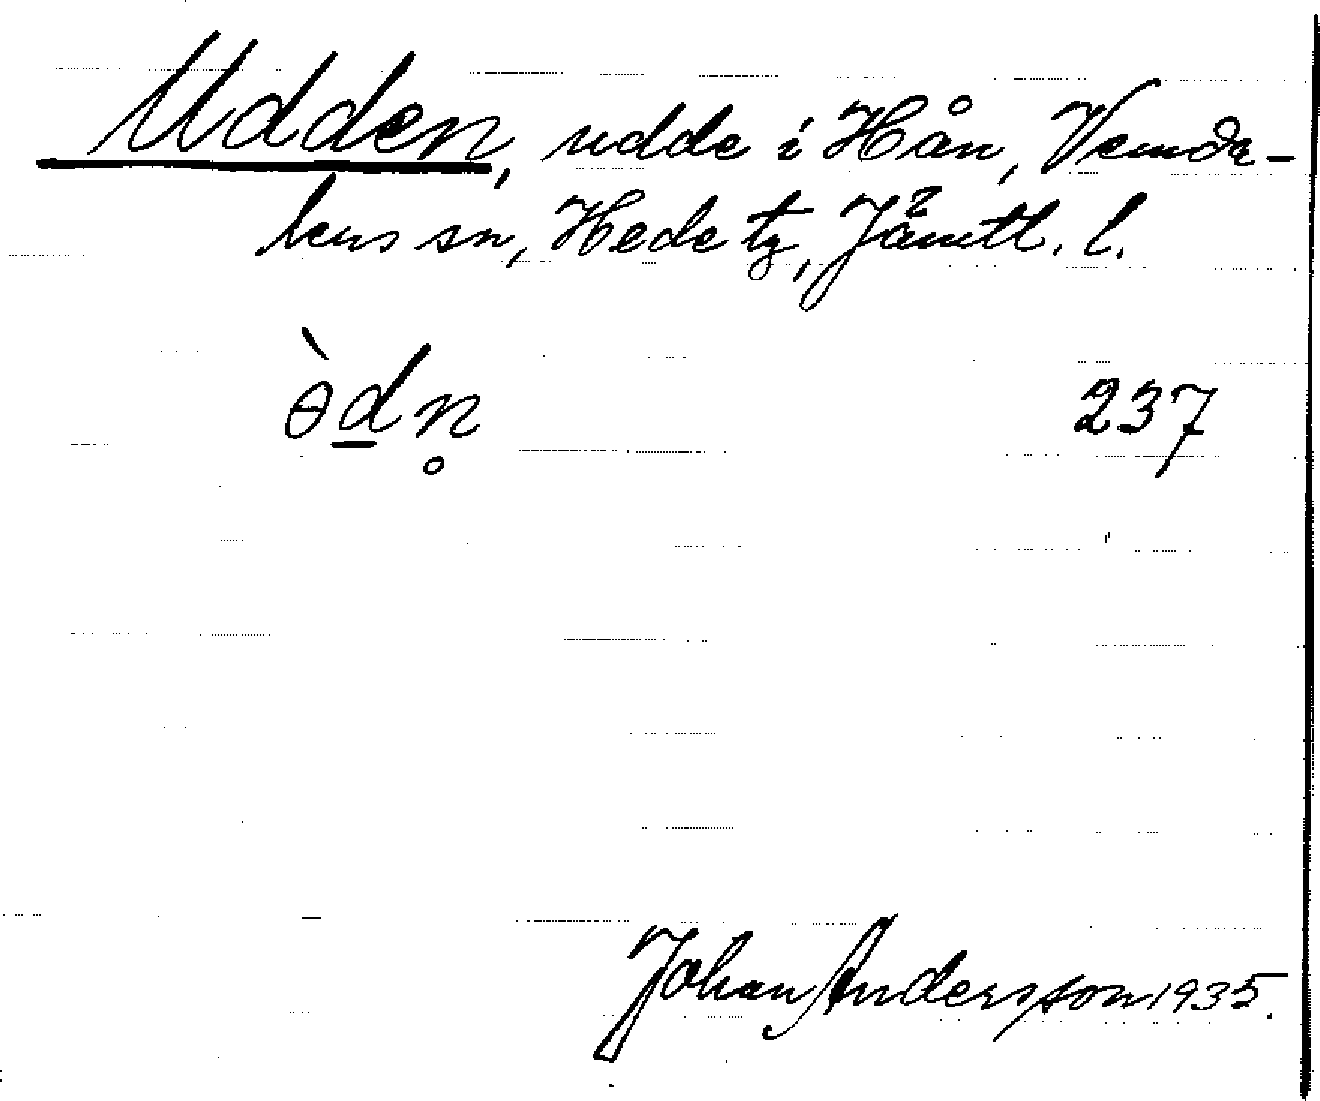 Udden, udde i Hån, Vemda-
lens sn, Hede tg, Jämtl. l.
ɵ̀d̲n̥ 237
Johan Andersson 1935.